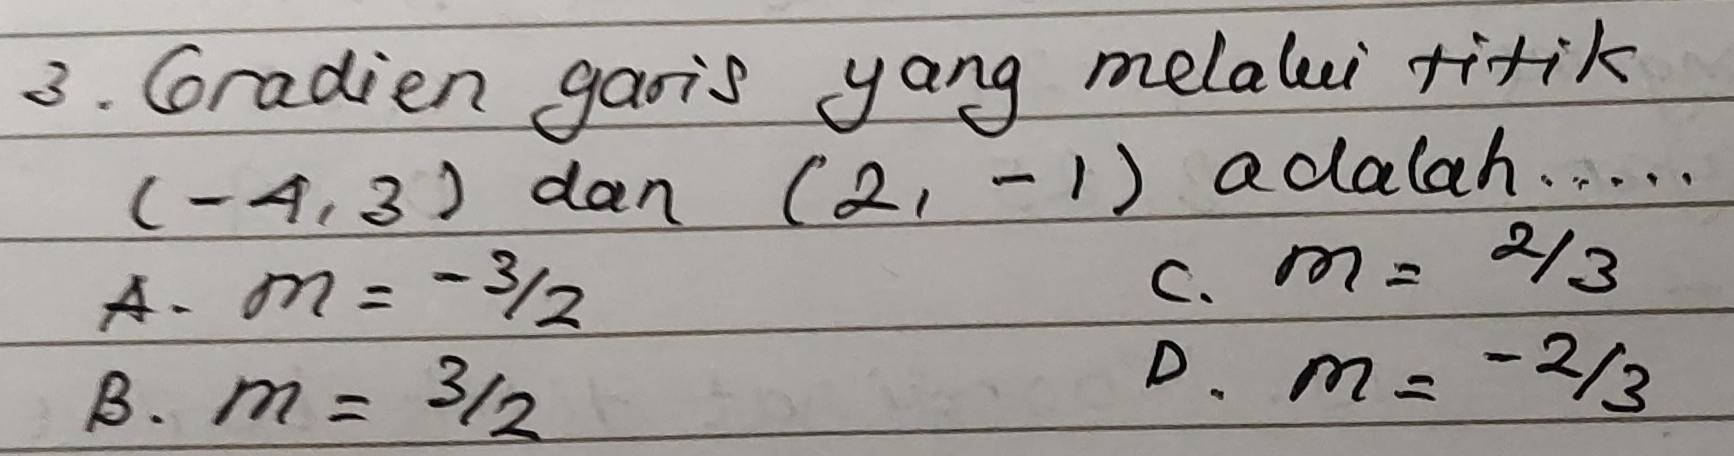 3. Gradien garis yang melalui titik
(-4,3) dan (2, -1) adalah......
A. m = -3/2
C. m = 2/3
B. m = 3/2
D. m = -2/3